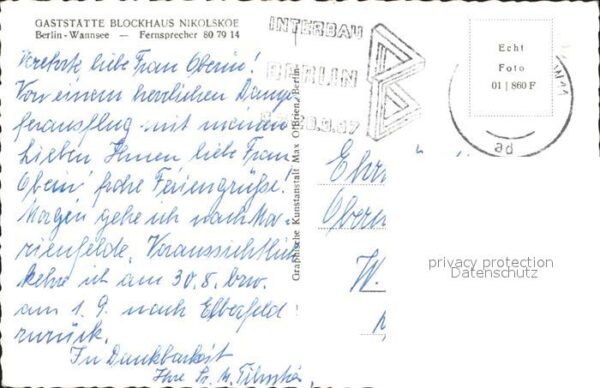 GASTSTÄTTE BLOCKHAUS NIKOLSKOE
Berlin-Wannsee — Fernsprecher 80 79 14
Verehrte, liebe Frau Oberin!
Von einem herrlichen Damp-
ferausflug mit meinen
Lieben Ihnen liebe Frau
Oberin frohe Feriengrüße!
Morgen gehe ich nach Ma-
rienfelde. Voraussichtlich
kehre ich am 30.8. bzw.
am 1.9. nach Elberfeld
zurück.
In Dankbarkeit
Ihre Sr. M.
Graphische Kunstanstalt Max O'Brien, Berlin
INTERBAU
BERLIN
Echt
Foto
01 | 860 F
Ehr
Obern
W.
privacy protection
Datenschutz